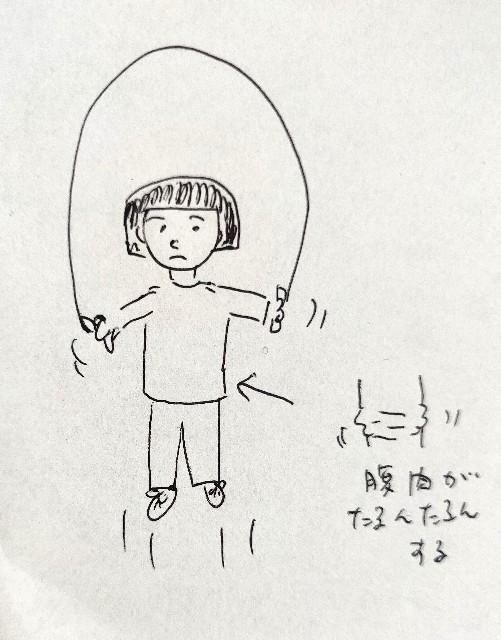 腹肉が
たるんたるん
する